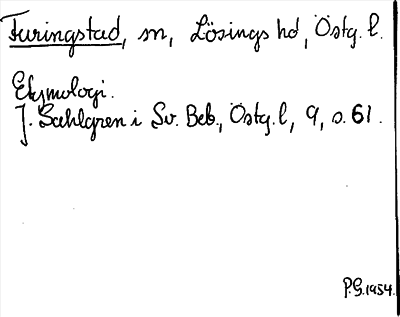 Turingstad, sn, Lösings hd, Östg. l.
Etymologi.
J. Sahlgren i Sv. Beb., Östg. l, 9, s. 61.
P.G. 1954.